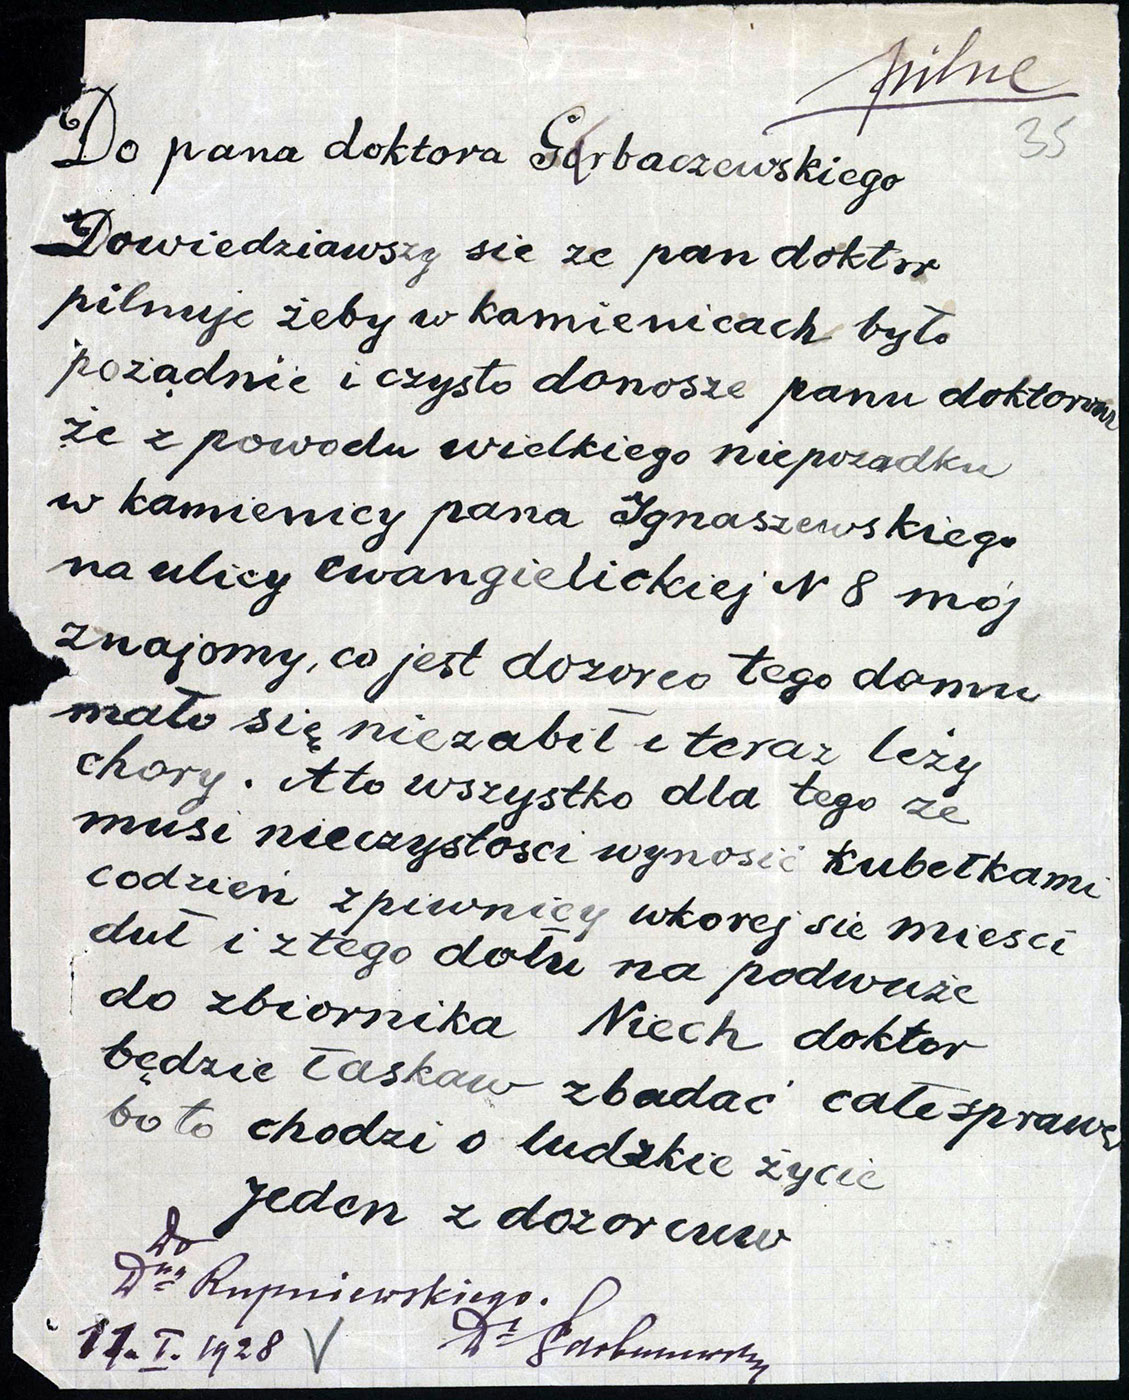 pilne
35
Do pana doktora Gorbaczewskiego
Dowiedziawszy sie ze pan doktor
pilnuje żeby w kamienicach było
pożądnie i czysto donosze panu doktorowi
że z powodu wielkiego niepożadku
w kamienicy pana Ignaszewskiego
na ulicy ewangielickiej N 8 mój
znajomy, co jest dozorco tego domu
mało się niezabił i teraz leży
chory. A to wszystko dla tego ze
musi nieczystosci wynosić kubełkami
codzień z piwnicy wkorej sie miesci
duł i z tego dołu na podwuże
do zbiornika Niech doktor
będzie łaskaw zbadać całe sprawę
bo to chodzi o ludzkie życie
Jeden z dozorcuw
Do
Dra Rupniewskiego.
11. I. 1928 V Dr